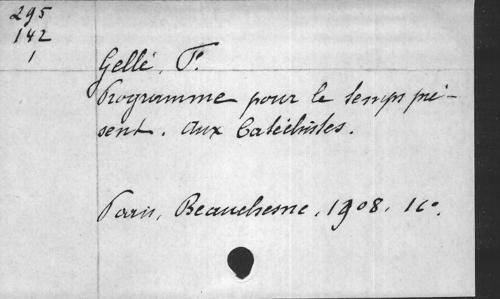 295
142
1
Gellé, F.
Programme pour le temps pré-
sent. Aux Catéchistes.
Paris, Beauchesne, 1908. 16°.